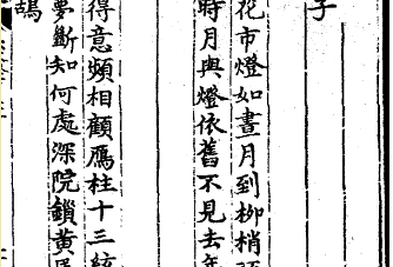 子
花市燈如晝月到栁梢
時月與燈依舊不見去年
得意頻相顧鴈柱十三絃
夢斷知何處深院鎖黄
鴣